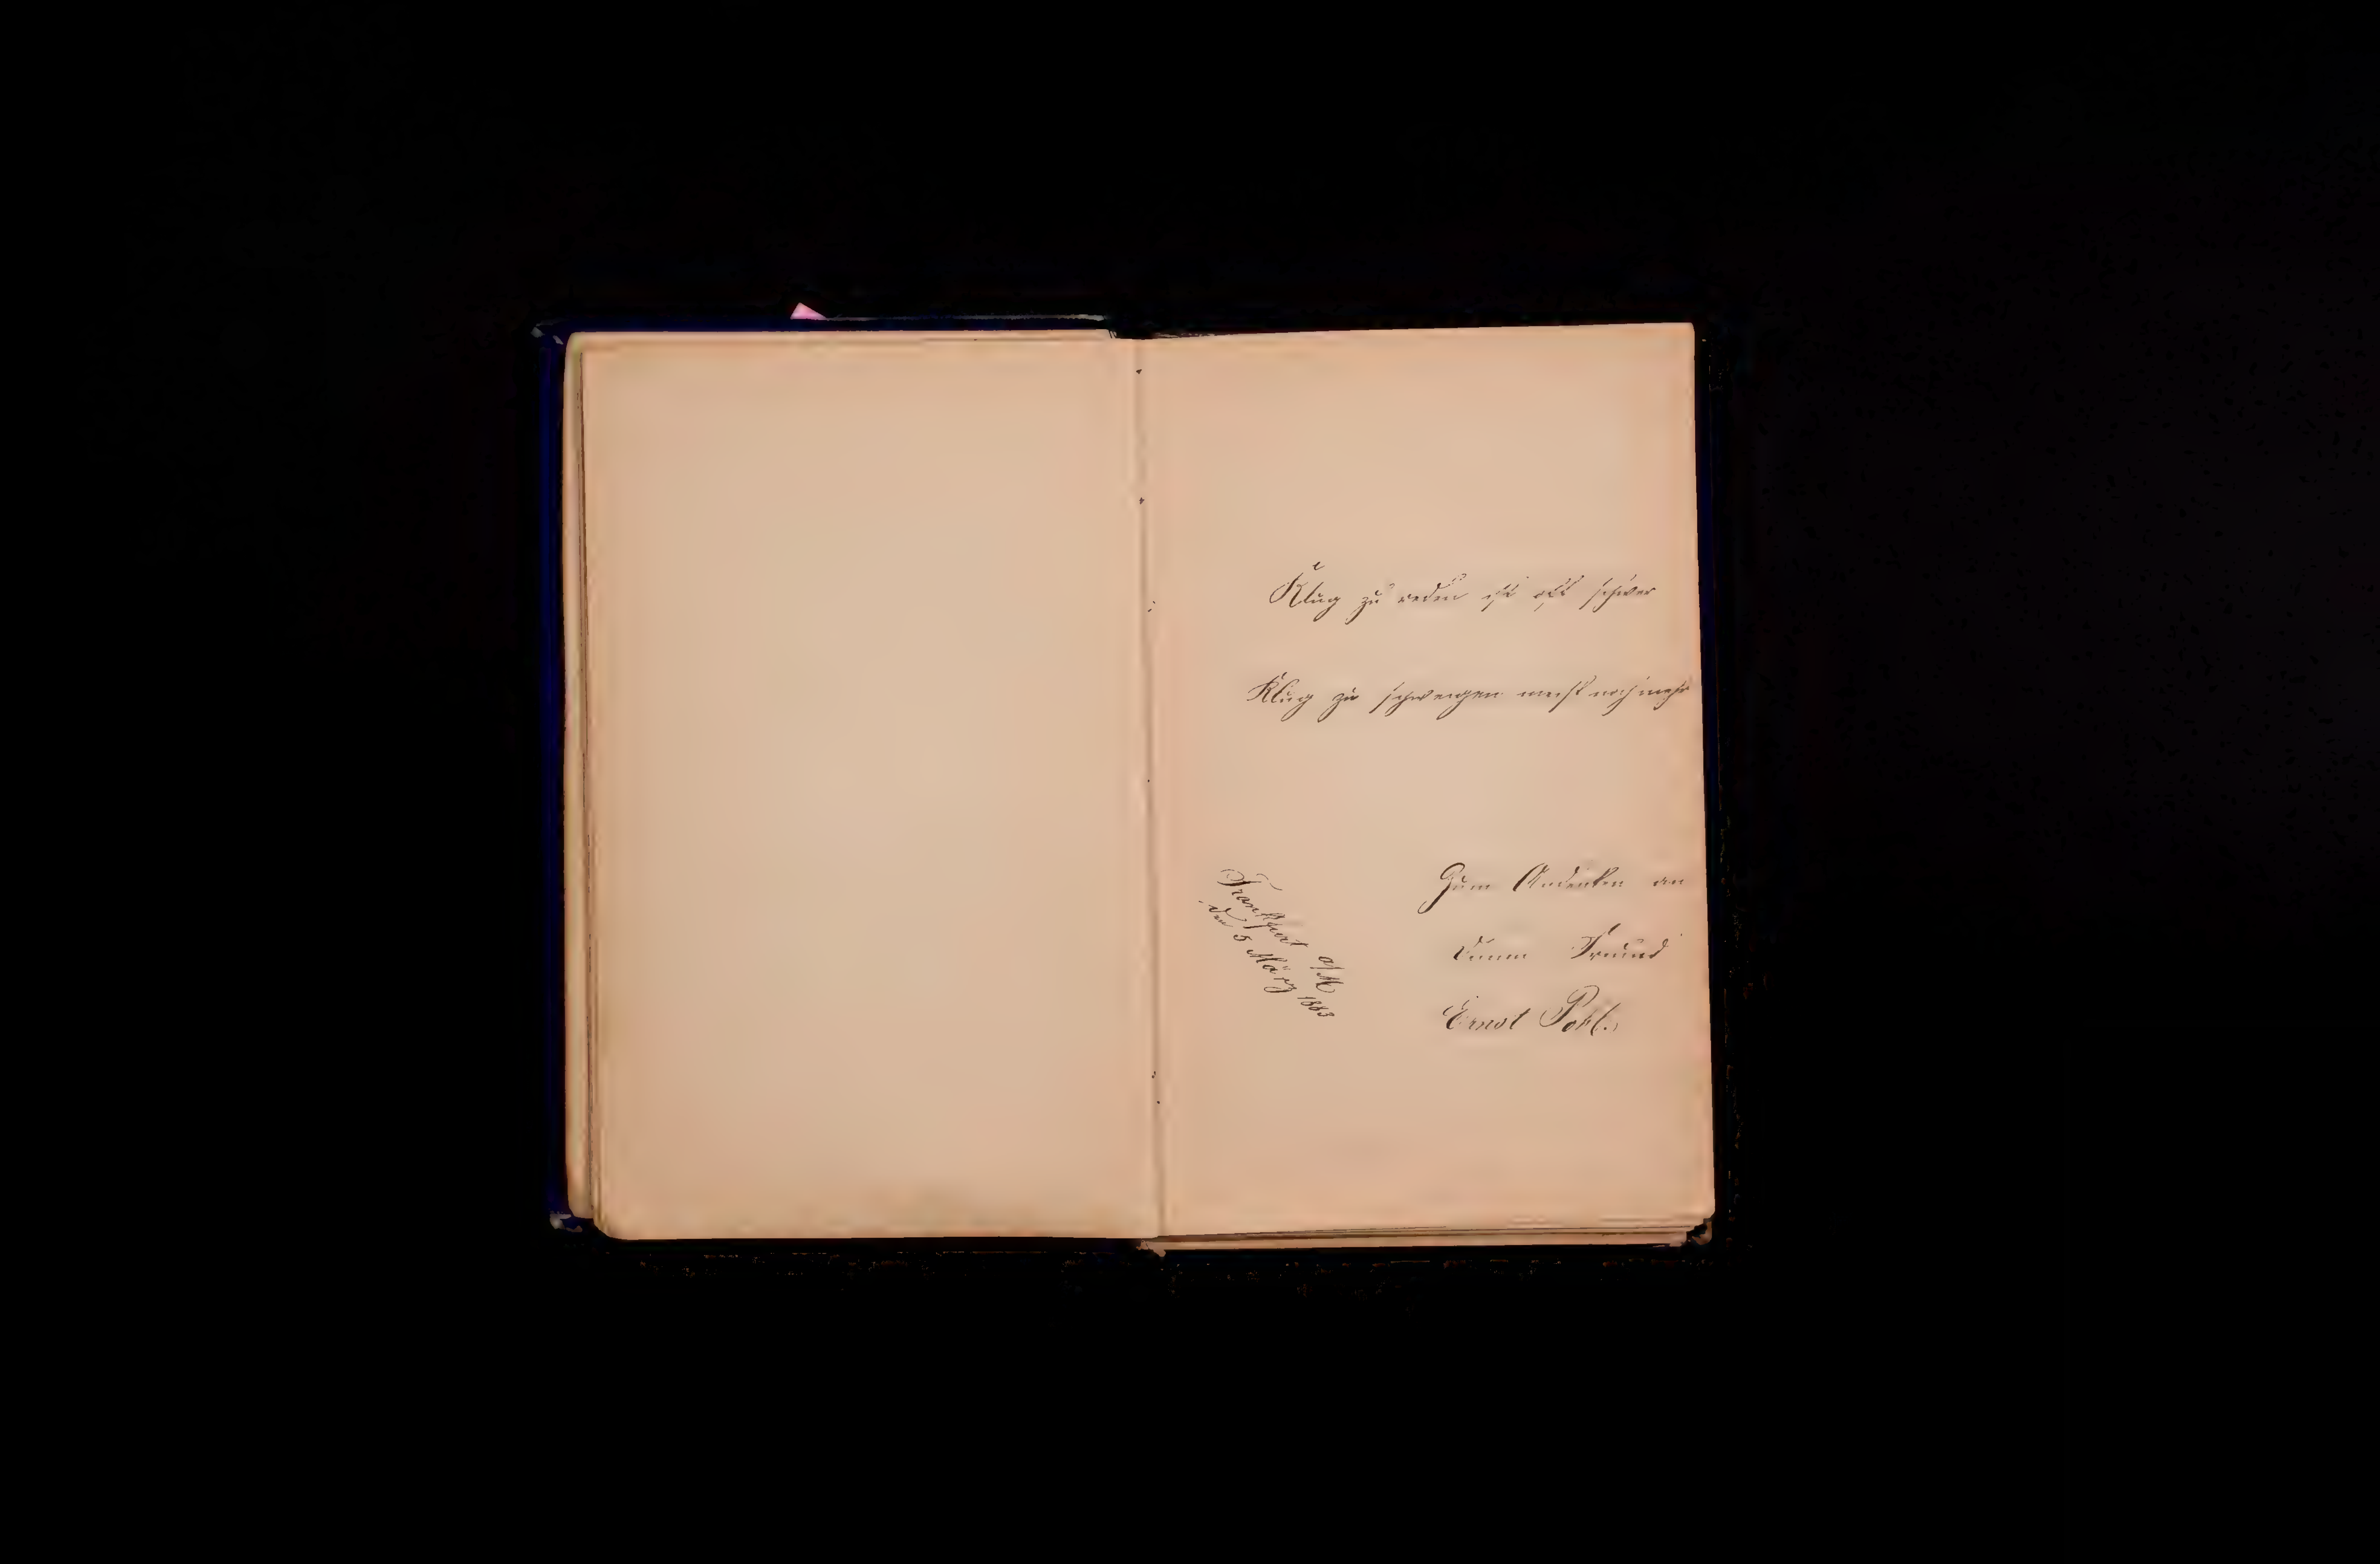 Klug zu reden ist oft schwer
Klug zu schweigen meist noch mehr
Zum Andenken an
Deinen Freund
Ernst Pohl.
Frankfurt a/M
den 5 März 1883